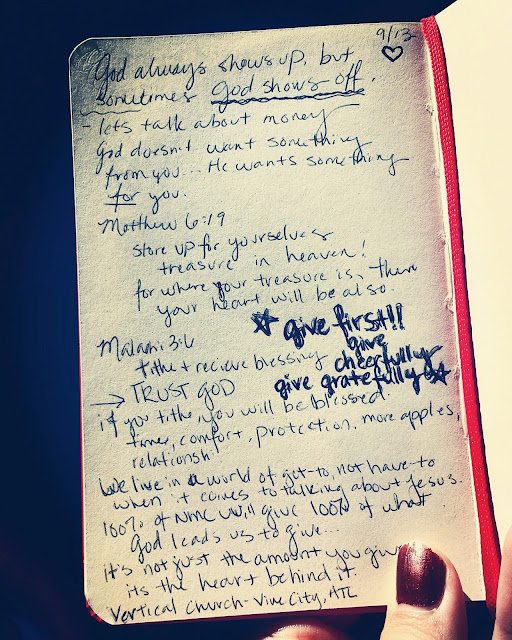 9/13
God always shows up, but
sometimes God shows off.
- lets talk about money
God doesn't want something
from you... He wants something
for you.
Matthew 6:19
store up for yourselves
treasure in heaven!
for where your treasure is, there
your heart will be also.
give first!!
give
cheerfully
give gratefully
Malachi 3:6
tithe + recieve blessing
→ TRUST GOD
if you tithe, you will be blessed:
time, comfort, protection, more apples,
relationship
We live in a world of get-to, not have-to
when it comes to talking about Jesus.
100% of NMC will give 100% of what
God leads us to give...
it's not just the amount you give
its the heart behind it.
Vertical Church - Vine City, ATL